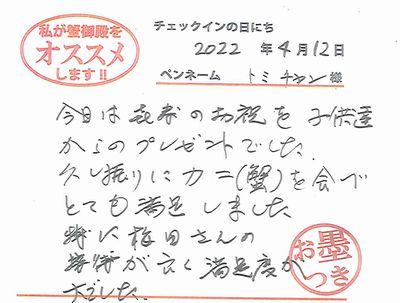 私が蟹御殿を
オススメ
します!!
チェックインの日にち
2022 年 4月 12日
ペンネーム トミチャン 様
今日は喜寿のお祝を子供達
からのプレゼントでした
久し振りにカニ(蟹)を食べ
とても満足しました
特に梅田さんの
接待が良く満足度が
大でした。
お墨
つき